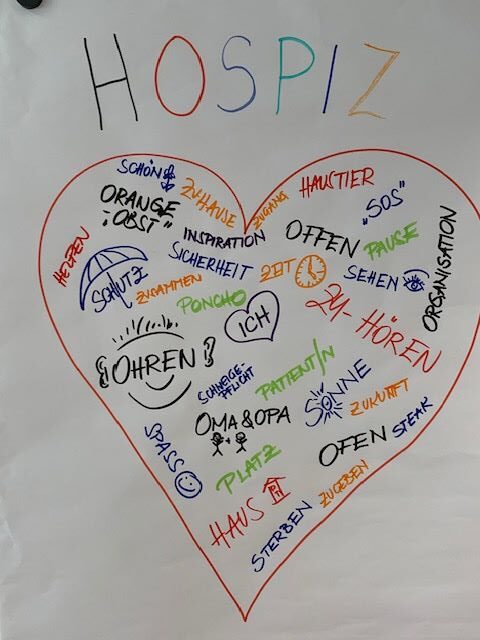 HOSPIZ
SCHÖN
ORANGE
"OBST"
ZUHAUSE
ZUGANG
HAUSTIER
"SOS"
HELFEN
INSPIRATION
OFFEN
PAUSE
ORGANISATION
SCHUTZ
SICHERHEIT
ZEIT
SEHEN
ZUSAMMEN
PONCHO
ICH
ZU-HÖREN
OHREN
SCHWEIGE-
PFLICHT
PATIENT/N
SONNE
ZUKUNFT
OMA & OPA
SPASS
PLATZ
OFEN
STEAK
HAUS
STERBEN
ZUGEBEN